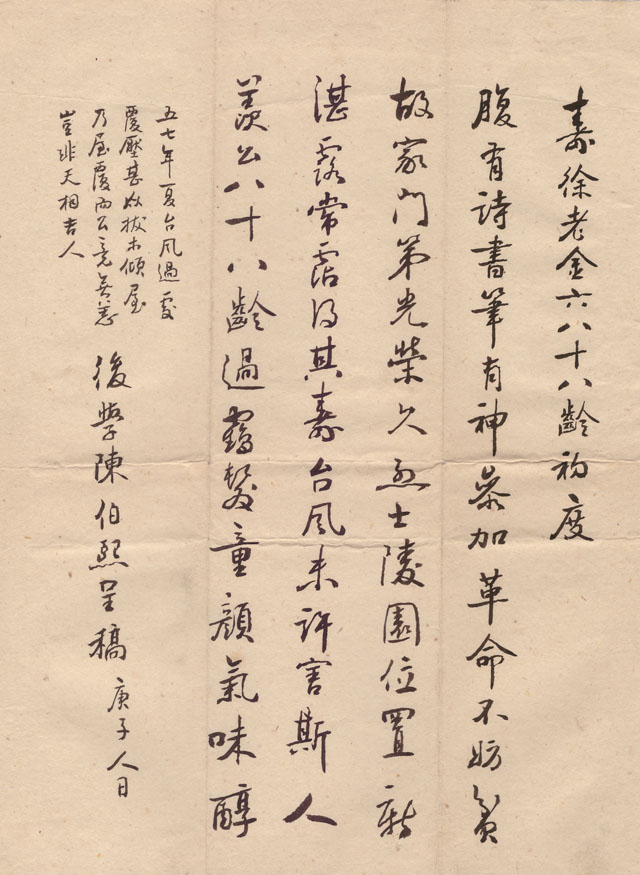 壽徐老金六八十八齡初度
腹有詩書筆有神參加革命不妨貧
故家門第光榮久烈士陵園位置新
湛露常霑得其壽台風未許害斯人
羨公八十八齡過鶴髮童顏氣味醇
五七年夏台風過處
覆壓甚似拔木傾屋
乃屋覆而公竟無恙
豈非天相吉人
後學陳伯熙呈稿 庚子人日